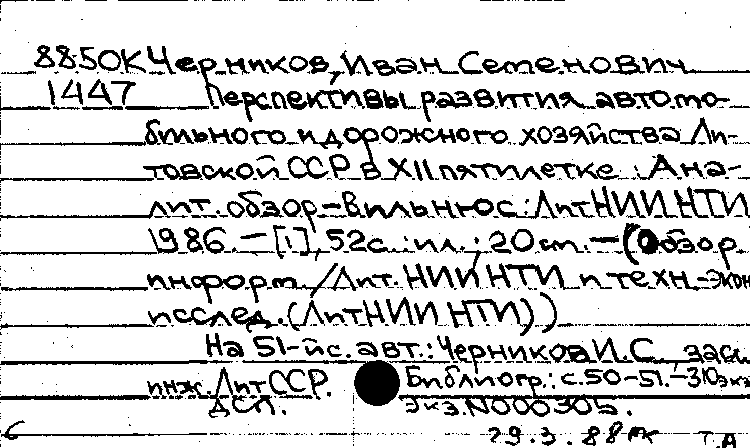 8850К Черников, Иван Семенович
1447 Перспективы развития автомо-
бильного и дорожного хозяйства Ли-
товской ССР в XII пятилетке : Ана-
лит. обзор - Вильнюс : ЛитНИИНТИ
1986. - [1], 52с. : ил. ; 20 см. - (Обзор.
информ. / Лит. НИИ НТИ и техн.-экон
исслед. (ЛитНИИ НТИ))
На 51-й с. авт.: Черников И.С., засл
инж. Лит ССР. Библиогр.: с. 50-51. - 310 экз
ДСП. Экз. N000305.
29.3.88